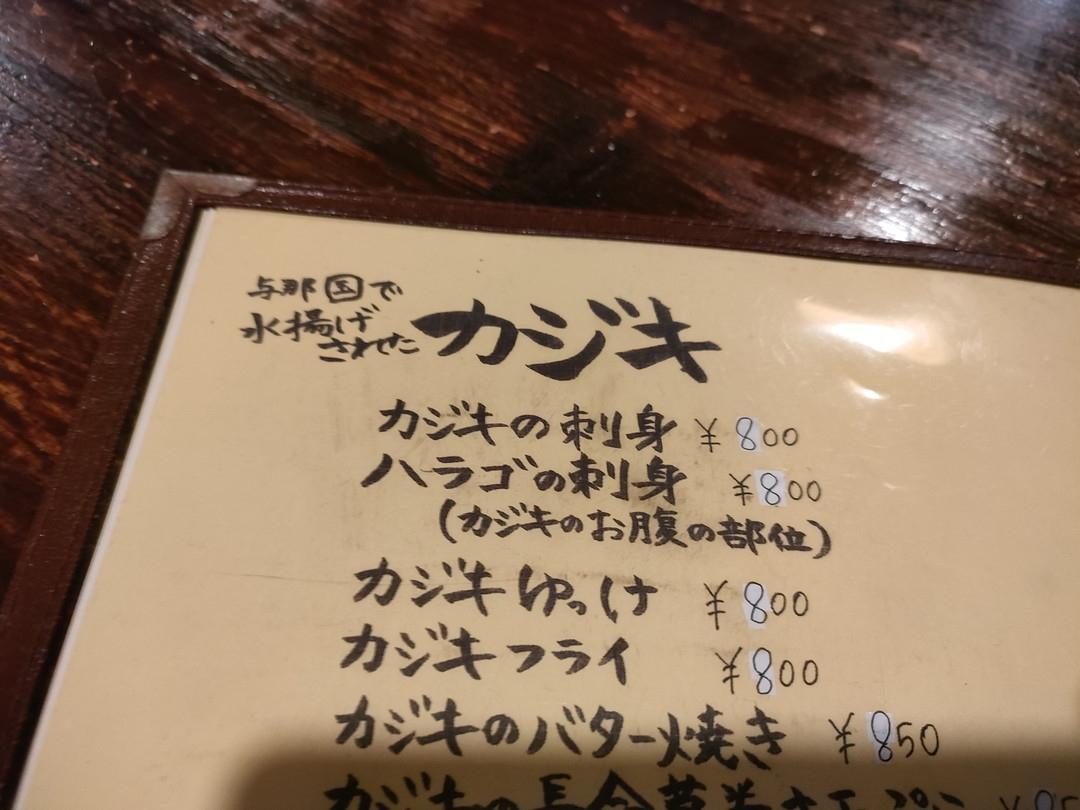 与那国で
水揚げ
された
カジキ
カジキの刺身 ¥800
ハラゴの刺身 ¥800
(カジキのお腹の部位)
カジキゆっけ ¥800
カジキフライ ¥800
カジキのバター焼き ¥850
カジキの長命草